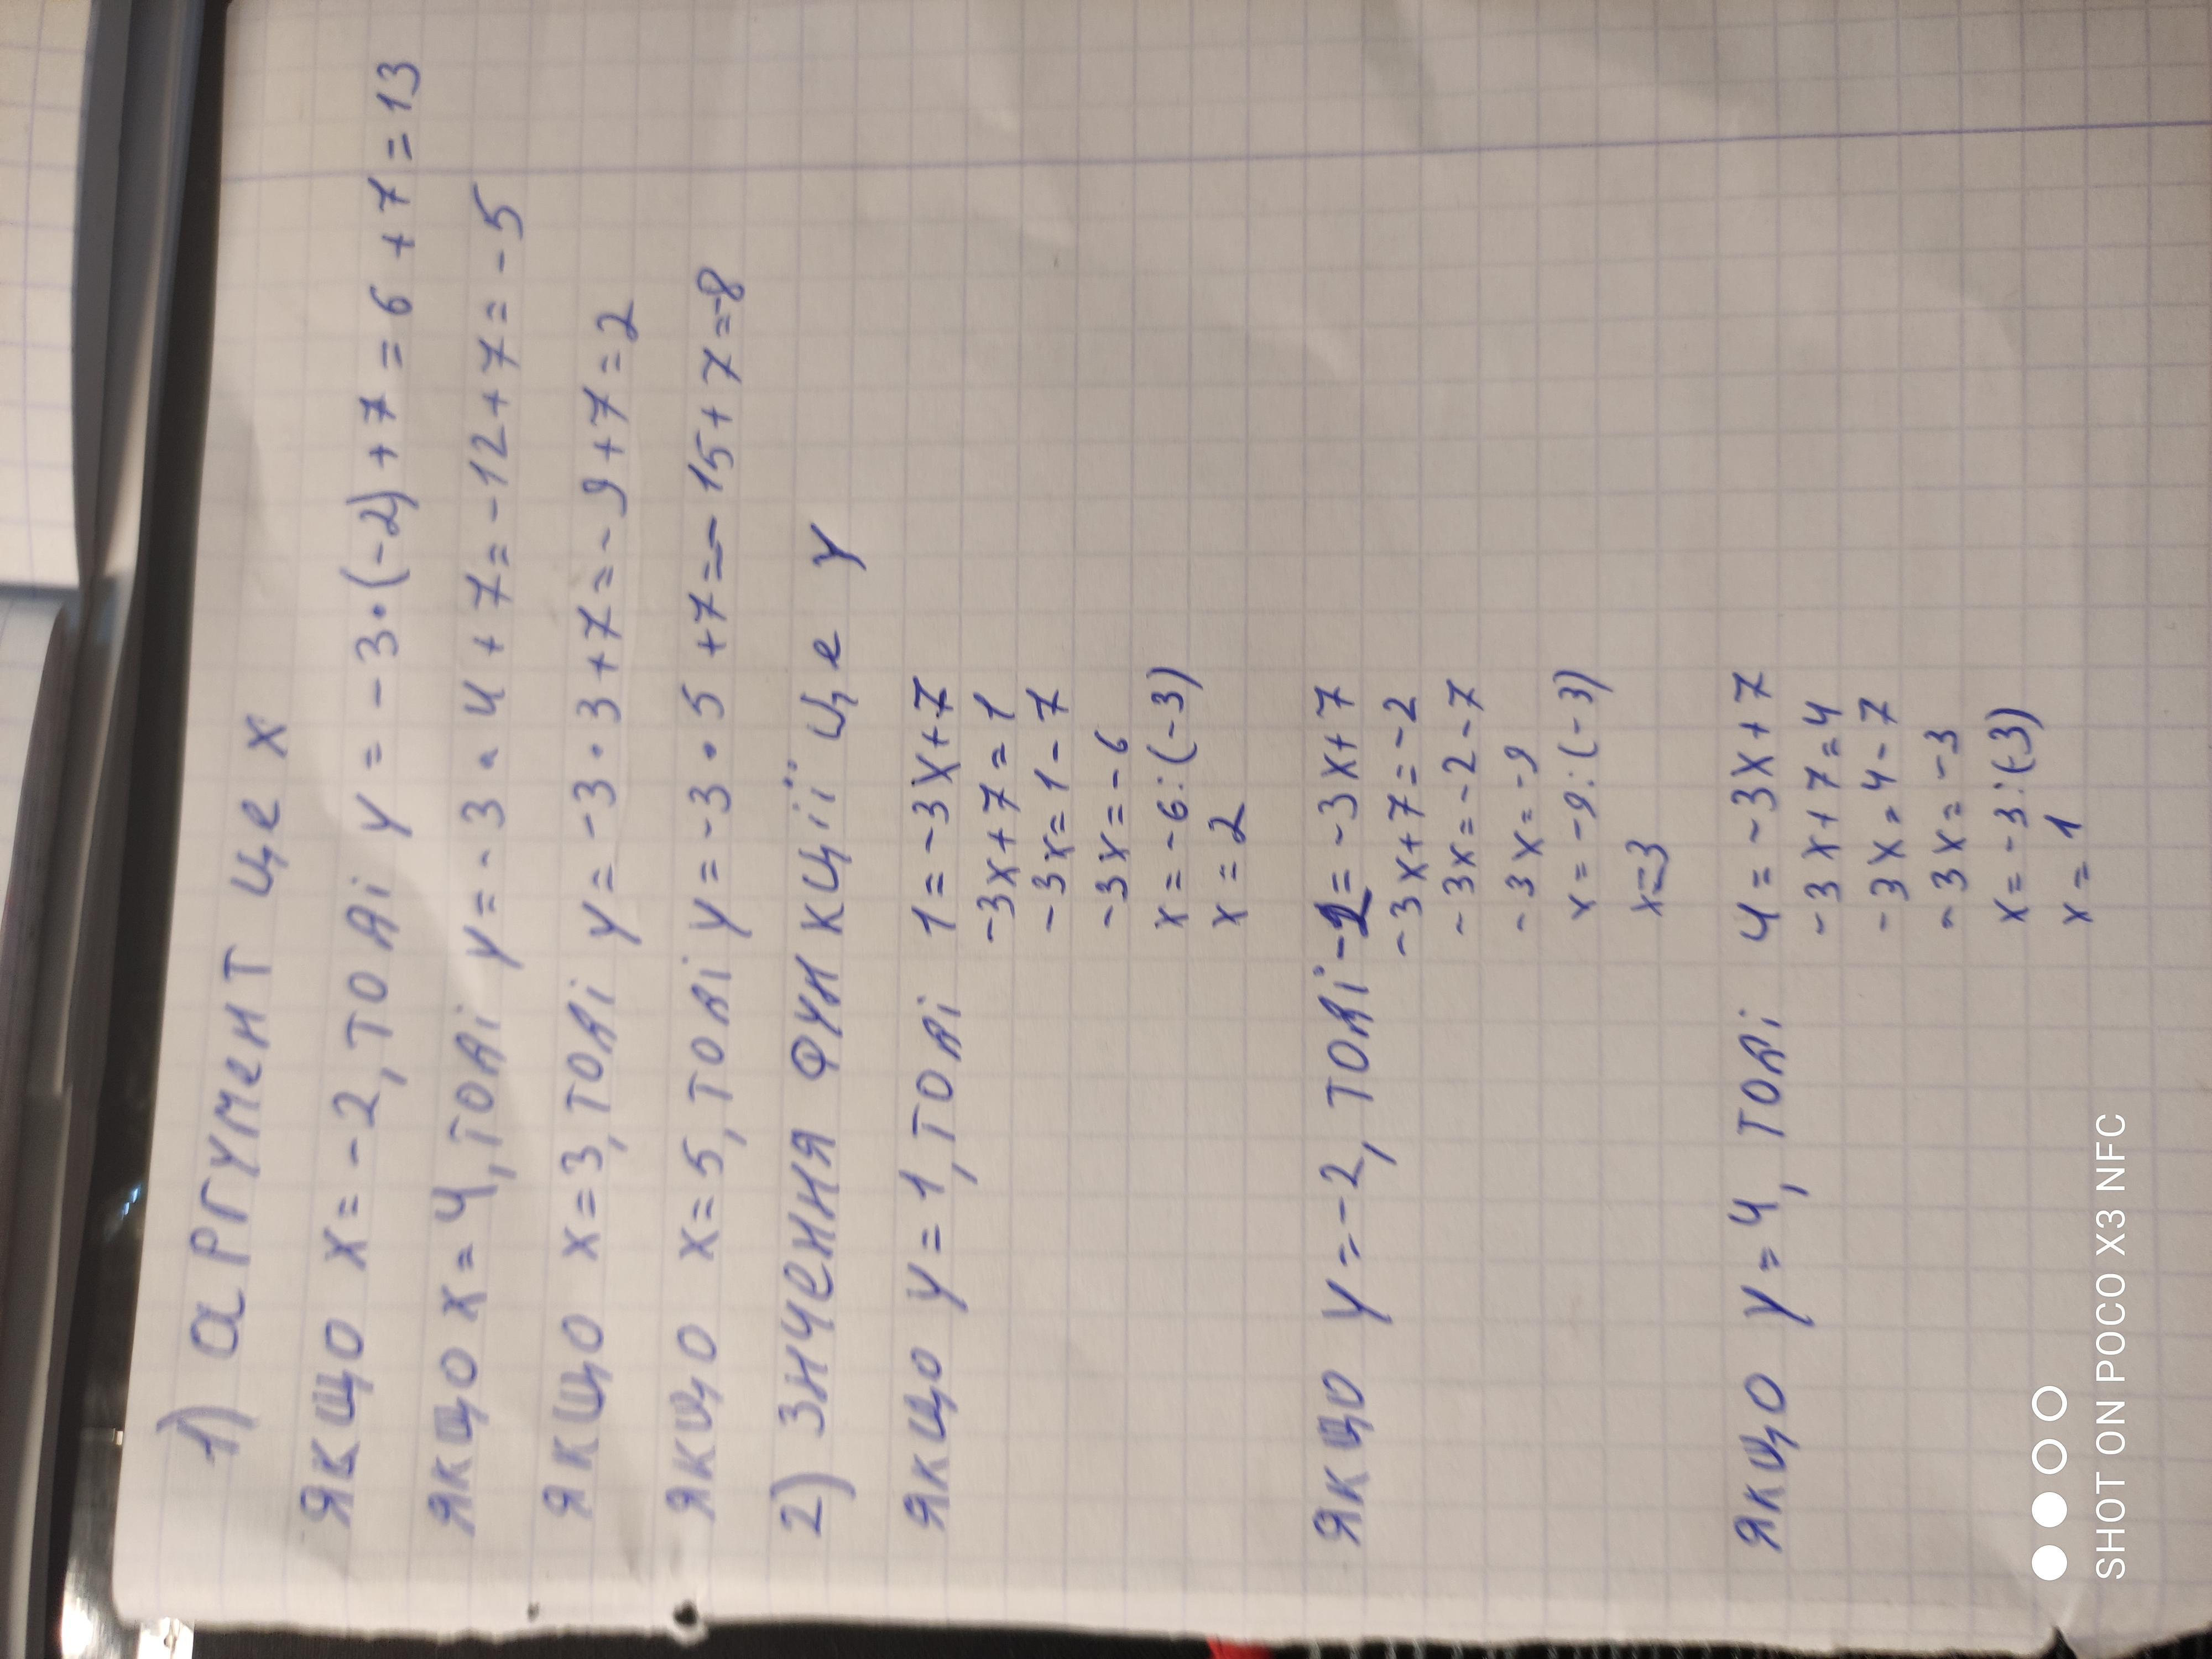 1) аргумент це x
якщо x = -2, тоді y = -3·(-2)+7 = 6+7=13
якщо x = 4, тоді y = -3·4+7=-12+7=-5
якщо x=3, тоді y = -3·3+7=-9+7=2
якщо x=5, тоді y=-3·5+7=-15+7=-8
2) знчення функції це y
якщо y=1, тоді 1=-3x+7
-3x+7=1
-3x=1-7
-3x=-6
x=-6:(-3)
x=2
якщо y=-2, тоді -2=-3x+7
-3x+7=-2
-3x=-2-7
-3x=-9
x=-9:(-3)
x=3
якщо y=4, тоді 4=-3x+7
-3x+7=4
-3x=4-7
-3x=-3
x=-3:(-3)
x=1
SHOT ON POCO X3 NFC